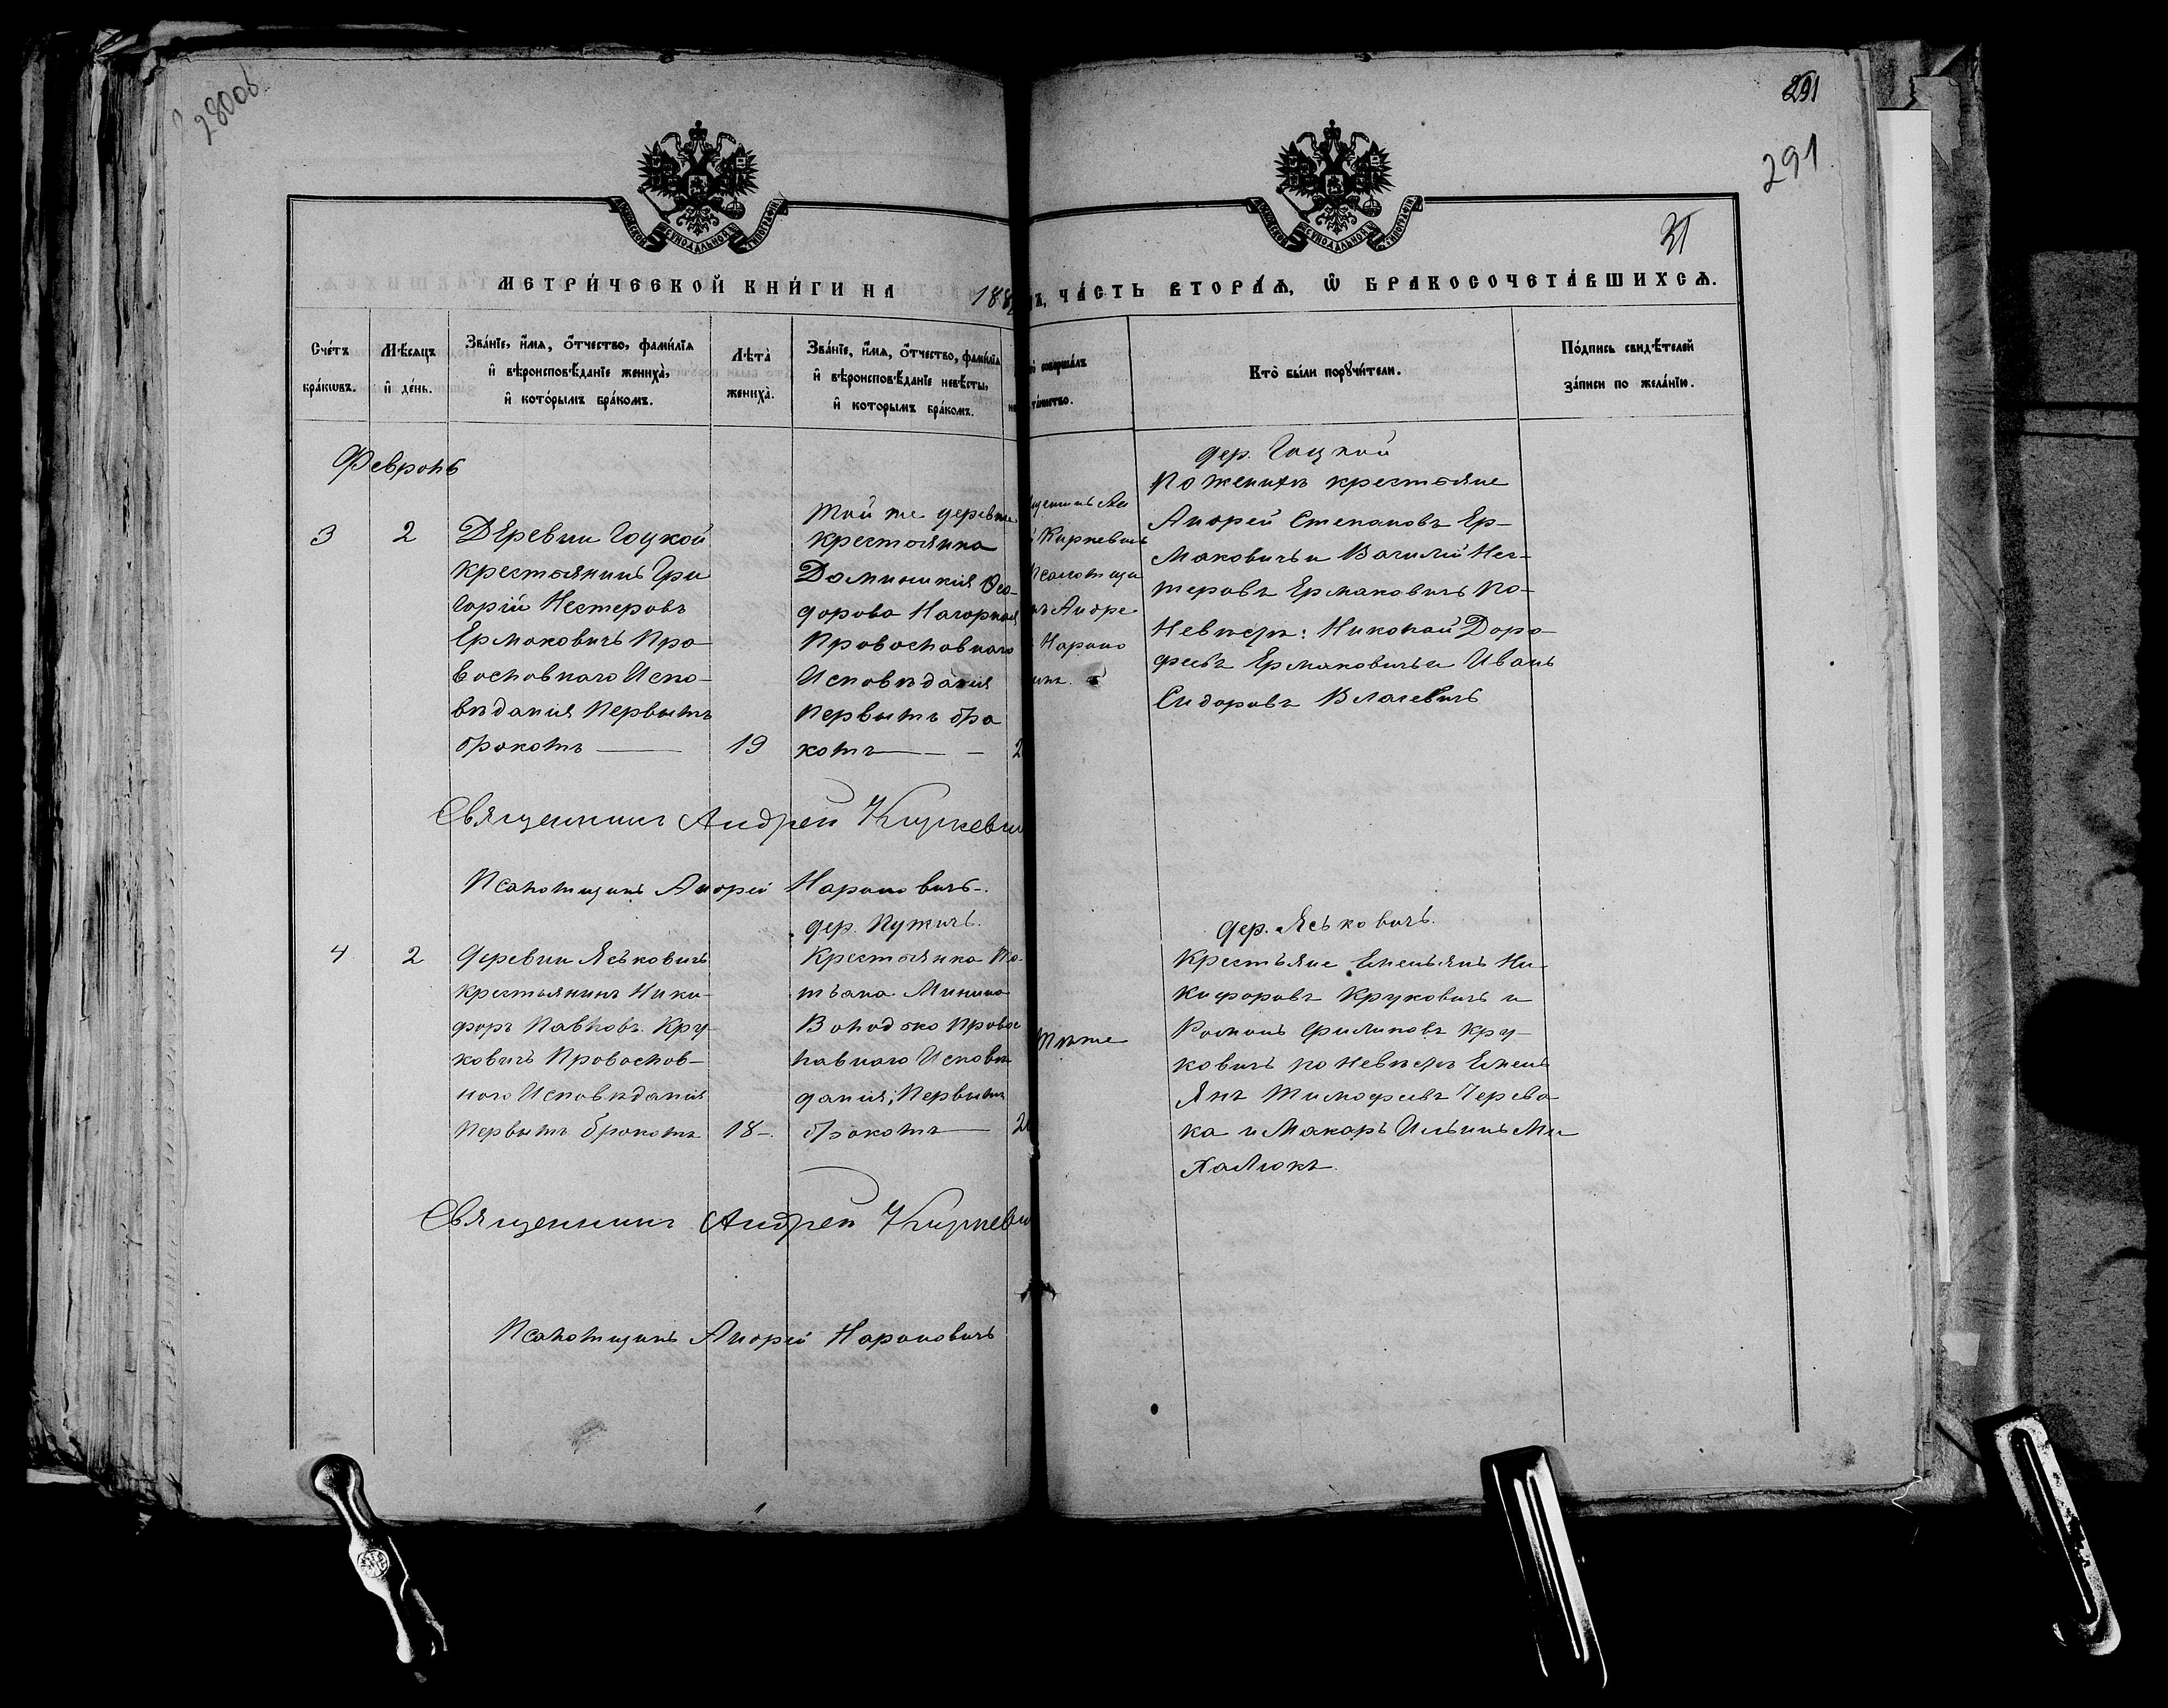 291
291
31
МОСКОВСКОЙ СѴНОДАЛЬНОЙ ТИПОГРАФІИ
МОСКОВСКОЙ СѴНОДАЛЬНОЙ ТИПОГРАФІИ
МЕТРИ́ЧЕСКОЙ КНИ́ГИ НА 188
ЧА́СТЬ ВТОРА́Ѧ, Ѽ БРАКОСОЧЕТА́ВШИХСѦ.
Сче́тъ
бра́кѡвъ.
Мѣ́сѧцъ
и҆ де́нь.
Зва́нїе, и҆́мѧ, ѻ҆́тчество, фами́лїѧ
и҆ вѣроисповѣ́данїе жениха̀,
и҆ кото́рымъ бра́комъ.
Лѣта̀
жениха̀.
Зва́нїе, и҆́мѧ, ѻ҆́тчество, фами́лїѧ
и҆ вѣроисповѣ́данїе невѣ́сты,
и҆ которымъ бра́комъ.
совершалъ
таинство.
Кто̀ бы́ли порꙋчи́тели.
По́дпись свидѣ́телей
за́писи по жела́нїю.
Февраль
3
2
Деревни Гоцкой
крестьянинъ Гри
горій Нестеровъ
Ермаковичъ Пра
вославнаго Испо-
вѣданія первымъ
бракомъ
19
Той же деревни
крестьянка
Доминикія Ѳео-
дорова Нагорная
Православнаго
Исповѣданія
первымъ бра
комъ
Киркевичъ
Псаломщи
къ Андре
Нароно
дер. Гоцкой
По женихѣ крестьяне
Андрей Степановъ Ер-
маковичъ и Василій Нес-
теровъ Ермаковичъ по-
Невѣстѣ: Николай Доро-
феевъ Ермаковичъ и Иванъ
Сидоровъ Власевичъ
Священникъ Андрей Киркевич
Псаломщикъ Андрей Нароновичъ.
4
2
Деревни Яськовичъ
крестьянинъ Ники-
форъ Павловъ Кру-
ковичъ Православ-
наго Исповѣданія
Первымъ бракомъ
18
дер. Пужичъ.
Крестьянка Та-
тьяна Минина
Володько Правос
лавнаго Исповѣ
данія, Первымъ
бракомъ
Тѣже
дер. Яськовичъ.
Крестьяне Емельянъ Ни-
кифоровъ Круковичъ и
Романъ Филиповъ Кру-
ковичъ по невѣстѣ Емель
янъ Тимофеевъ Черева
ка и Макаръ Ильинъ Ми
халюкъ.
Священникъ Андрей Киркеви
Псаломщикъ Андрей Нароновичъ